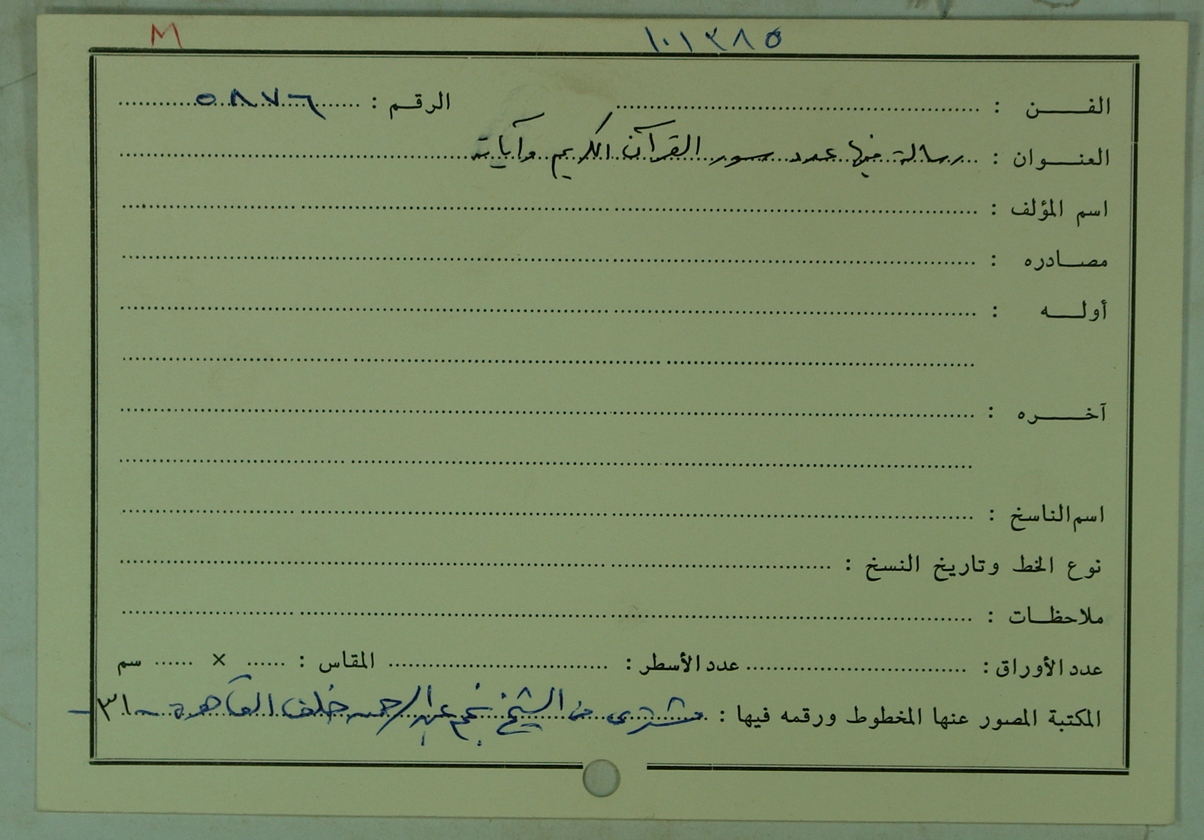 M ١٠١٣٨٥
الفـن : الرقم : ٥٨٧٦
العنوان : رسالة فيها عدد سور القرآن الكريم وآياته
اسم المؤلف :
مصادره :
أوله :
آخره :
اسم الناسخ :
نوع الخط وتاريخ النسخ :
ملاحظات :
عدد الأوراق : عدد الأسطر : المقاس : × سم
المكتبة المصور عنها المخطوط ورقمه فيها : مشترى من الشيخ نجم عبد الرحمن خلف القاهرة - ٣١ -